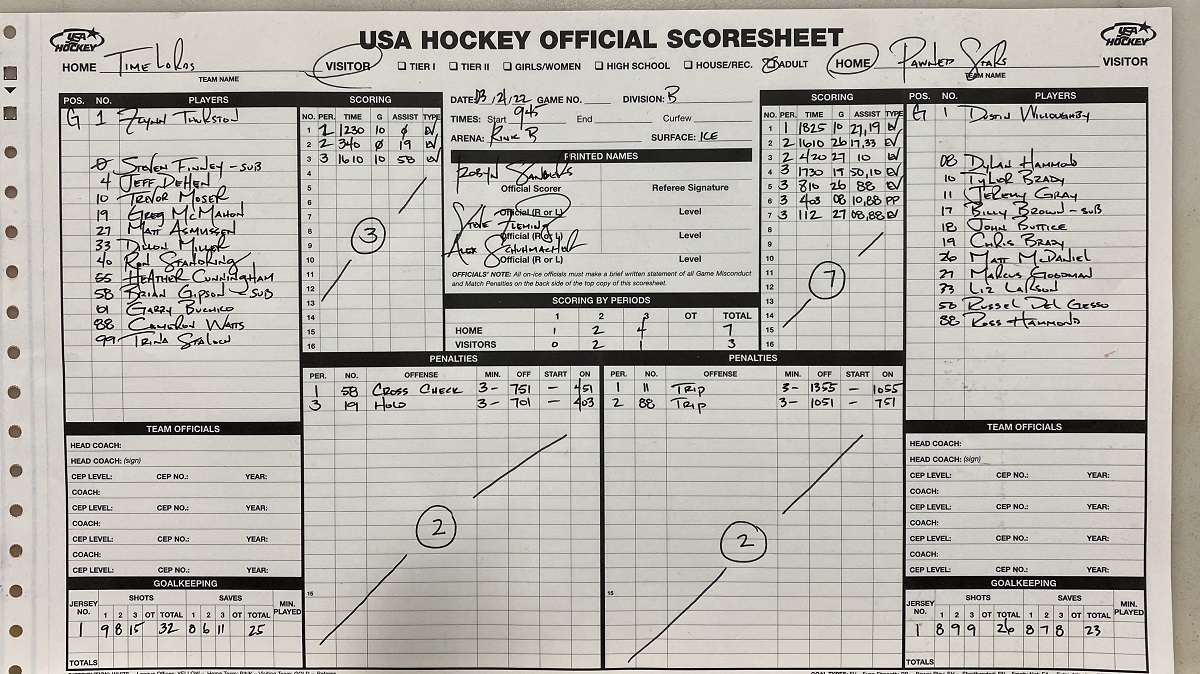 USA HOCKEY
USA HOCKEY OFFICIAL SCORESHEET
USA HOCKEY
HOME Time Lords
TEAM NAME
VISITOR
TIER I TIER II GIRLS/WOMEN HIGH SCHOOL HOUSE/REC. ADULT
HOME Pawned Stars VISITOR
TEAM NAME
POS. NO. PLAYERS
G 1 Flynn Thurston
0 Steven Finney - SUB
4 Jeff Dehen
10 Trevor Moser
19 Greg McMahon
27 Matt Asmussen
33 Dillon Miller
40 Ron Standring
55 Heather Cunningham
58 Brian Gipson - SUB
81 Garry Buchko
88 Cameron Watts
99 Trina Staloch
SCORING
NO. PER. TIME G ASSIST TYPE
1 2 1230 10 0 EV
2 2 340 0 19 EV
3 3 1610 10 58 EV
4
5
6
7
8
9
10
11
12
13
14
15
16
3
DATE: 13/2/22 GAME NO. DIVISION: B
TIMES: Start 945 End Curfew
ARENA: Rink B SURFACE: ICE
PRINTED NAMES
Robyn Sanders
Official Scorer Referee Signature
Official (R or L) Level
Steve Fleming
Official (R or L) Level
Alex Schuhmacher
Official (R or L) Level
OFFICIALS' NOTE: All on-ice officials must make a brief written statement of all Game Misconduct
and Match Penalties on the back side of the top copy of this scoresheet.
SCORING BY PERIODS
1 2 3 OT TOTAL
HOME 1 2 4 7
VISITORS 0 2 1 3
SCORING
NO. PER. TIME G ASSIST TYPE
1 1 1825 10 27,19 EV
2 2 1610 26 17,33 EV
3 2 420 27 10 EV
4 3 1730 17 50,10 EV
5 3 810 26 88 EV
6 3 403 08 10,88 PP
7 3 112 27 08,88 EV
8
9
10
11
12
13
14
15
16
7
POS. NO. PLAYERS
G 1 Dustin Willoughby
08 Dylan Hammond
10 Tyler Brady
11 Jeremy Gray
17 Billy Brown - SUB
18 John Buttice
19 Chris Brady
26 Matt McDaniel
27 Marcus Goodman
33 Liz Larson
50 Russel Del Gesso
88 Ross Hammond
PENALTIES
PER. NO. OFFENSE MIN. OFF START ON
1 58 Cross Check 3- 751 - 451
3 19 Hold 3- 701 - 403
15
2
PENALTIES
PER. NO. OFFENSE MIN. OFF START ON
1 11 Trip 3- 1355 - 1055
2 88 Trip 3- 1051 - 751
15
2
TEAM OFFICIALS
HEAD COACH:
HEAD COACH: (sign)
CEP LEVEL: CEP NO.: YEAR:
COACH:
CEP LEVEL: CEP NO.: YEAR:
COACH:
CEP LEVEL: CEP NO.: YEAR:
COACH:
CEP LEVEL: CEP NO.: YEAR:
GOALKEEPING
JERSEY NO. SHOTS SAVES MIN. PLAYED
1 2 3 OT TOTAL 1 2 3 OT TOTAL
1 9 8 15 32 8 6 11 25
TOTALS
TEAM OFFICIALS
HEAD COACH:
HEAD COACH: (sign)
CEP LEVEL: CEP NO.: YEAR:
COACH:
CEP LEVEL: CEP NO.: YEAR:
COACH:
CEP LEVEL: CEP NO.: YEAR:
COACH:
CEP LEVEL: CEP NO.: YEAR:
GOALKEEPING
JERSEY NO. SHOTS SAVES MIN. PLAYED
1 2 3 OT TOTAL 1 2 3 OT TOTAL
1 8 9 9 26 8 7 8 23
TOTALS